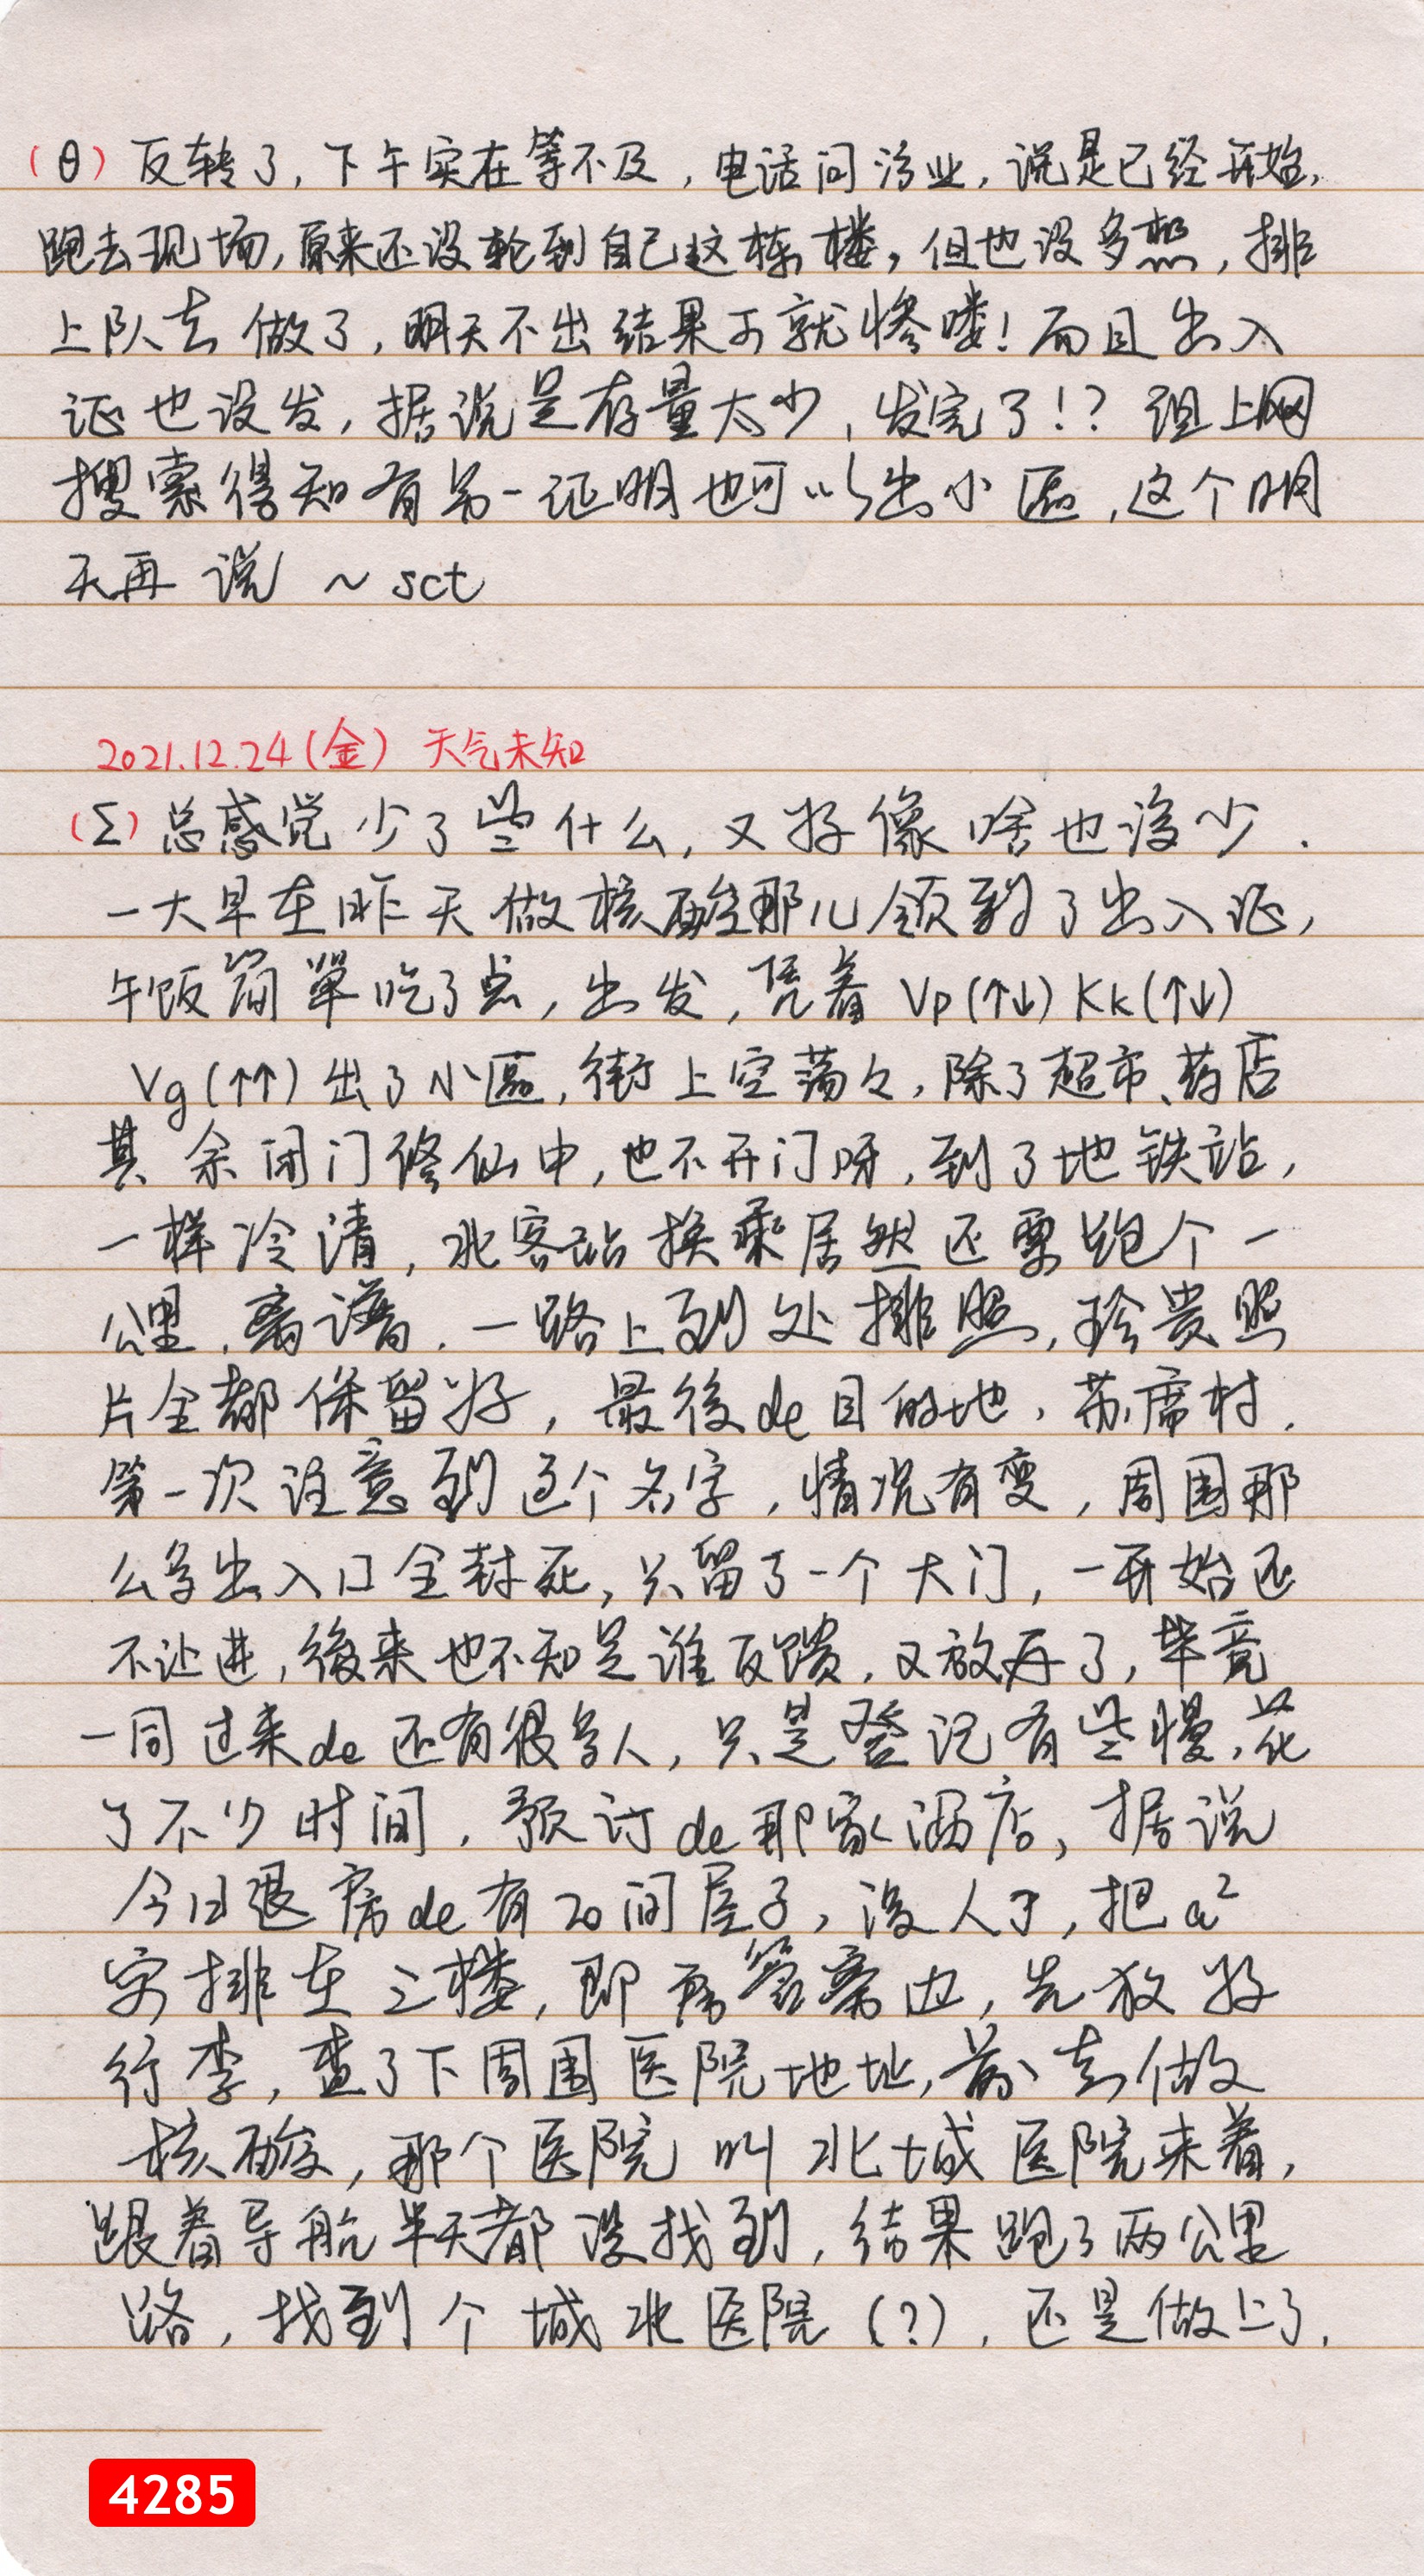 (θ) 反转了，下午实在等不及，电话问物业，说是已经开始，
跑去现场，原来还没轮到自己这栋楼，但也没多想，排
上队去做了，明天不出结果可就惨喽！而且出入
证也没发，据说是存量太少，发完了！？但上网
搜索得知有另一证明也可以出小區，这个明
天再说 ~ sct
2021.12.24(金) 天气未知
(Σ) 总感觉少了些什么，又好像啥也没少.
一大早在昨天做核酸那儿领到了出入证，
午饭简單吃了点，出发，凭着 Vp(↑↓) Kk(↑↓)
Vg(↑↑) 出了小區，街上空荡々，除了超市、药店
其余闭门修仙中，也不开门呀，到了地铁站，
一样冷清，北客站换乘居然还要跑个一
公里，离谱，一路上到处排照，珍贵照
片全都保留好，最後de目的地，茀席村.
第一次注意到这个名字，情况有变，周围那
么多出入口全封死，只留了一个大门，一开始还
不让进，後来也不知是谁反馈，又放开了，毕竟
一同过来de还有很多人，只是登记有些慢，花
了不少时间，预订de那家酒店，据说
今日退房de有20间屋子，没人了，把a²
安排在三楼，即布草旁边，先放好
行李，查了下周围医院地址，前去做
核酸，那个医院叫北城医院来着，
跟着导航半天都没找到，结果跑了两公里
路，找到个城北医院(？)，还是做上了，
4285